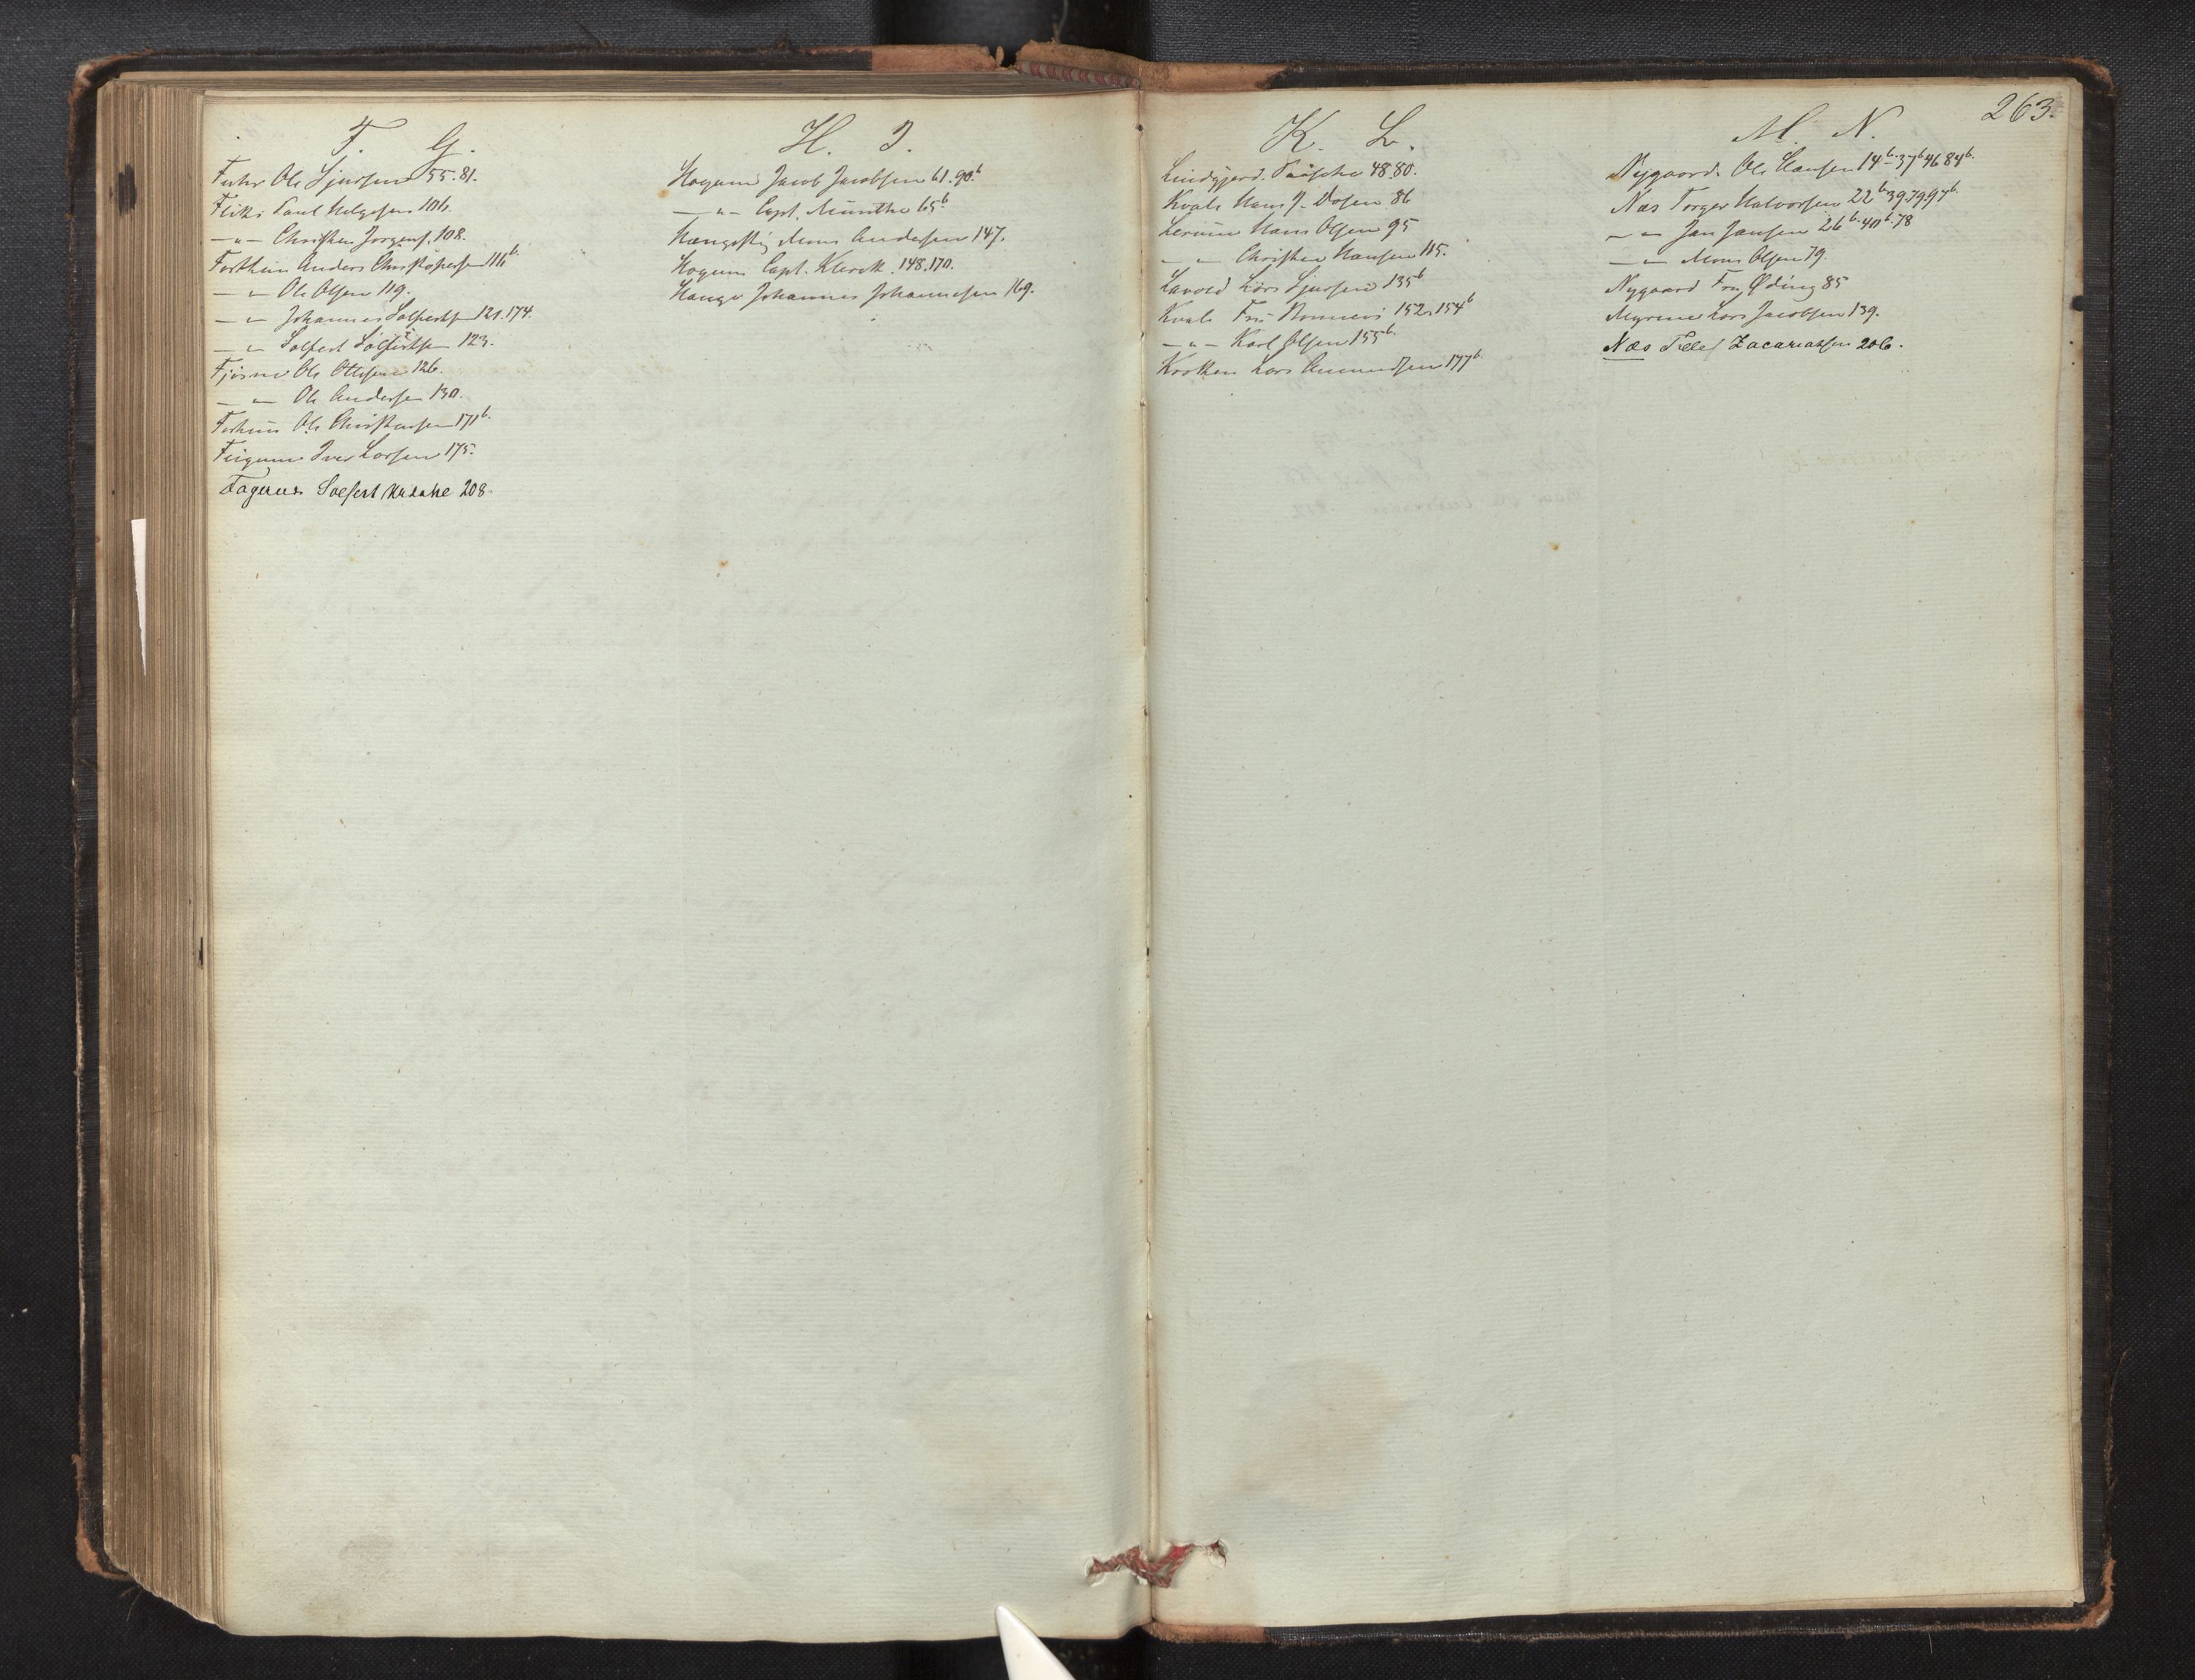 F. G.
Fuhr Ole Sjursen 55. 81.
Flikí Paul Helgesen 106.
— " — Christen Jörgens. 108.
Forthun Anders Christophersen 116 b.
— " — Ole Olsen 119.
— " — Johannes Solfestsen 121. 174.
— " — Solfest Solfestsen 123.
Fjösne Ole Ottesen 126.
— " — Ole Andersen 130.
Forthun Ole Christensen 171 b.
Feigum Iver Larsen 175.
Fagernes Soefest 208.
H. I.
Hogum Jacob Jacobsen 61. 90 b.
— " — Capt. Münthe 65 b
Mons Andersen 147.
Hogum Capt. Klerck. 148. 170.
Hauge Johannes Johannesen 169.
K. L.
Lindgjerd. 48 80.
Kvale Hans J. Dosen 86
Lerum Hans Olsen 95
— " — Christen Hansen 115.
Lavold Lars Sjursen 135 b
Kvale Fru 152. 154 b
— " — Karl Olsen 155 b.
Krokken Lars Amundsen 177 b.
M. N. 263.
Nygaard. Ole Hansen 14 b. 37 b 46 84 b.
Næs Torger Halvorsen 22 b. 39. 79. 97 b.
— " — Jan Jansen 26 b. 40 b. 78
— " — Mons Olsen 79.
Nygaard Fru Øding 85
Myrene Lars Jacobsen 139.
Næs Zacariassen 206.